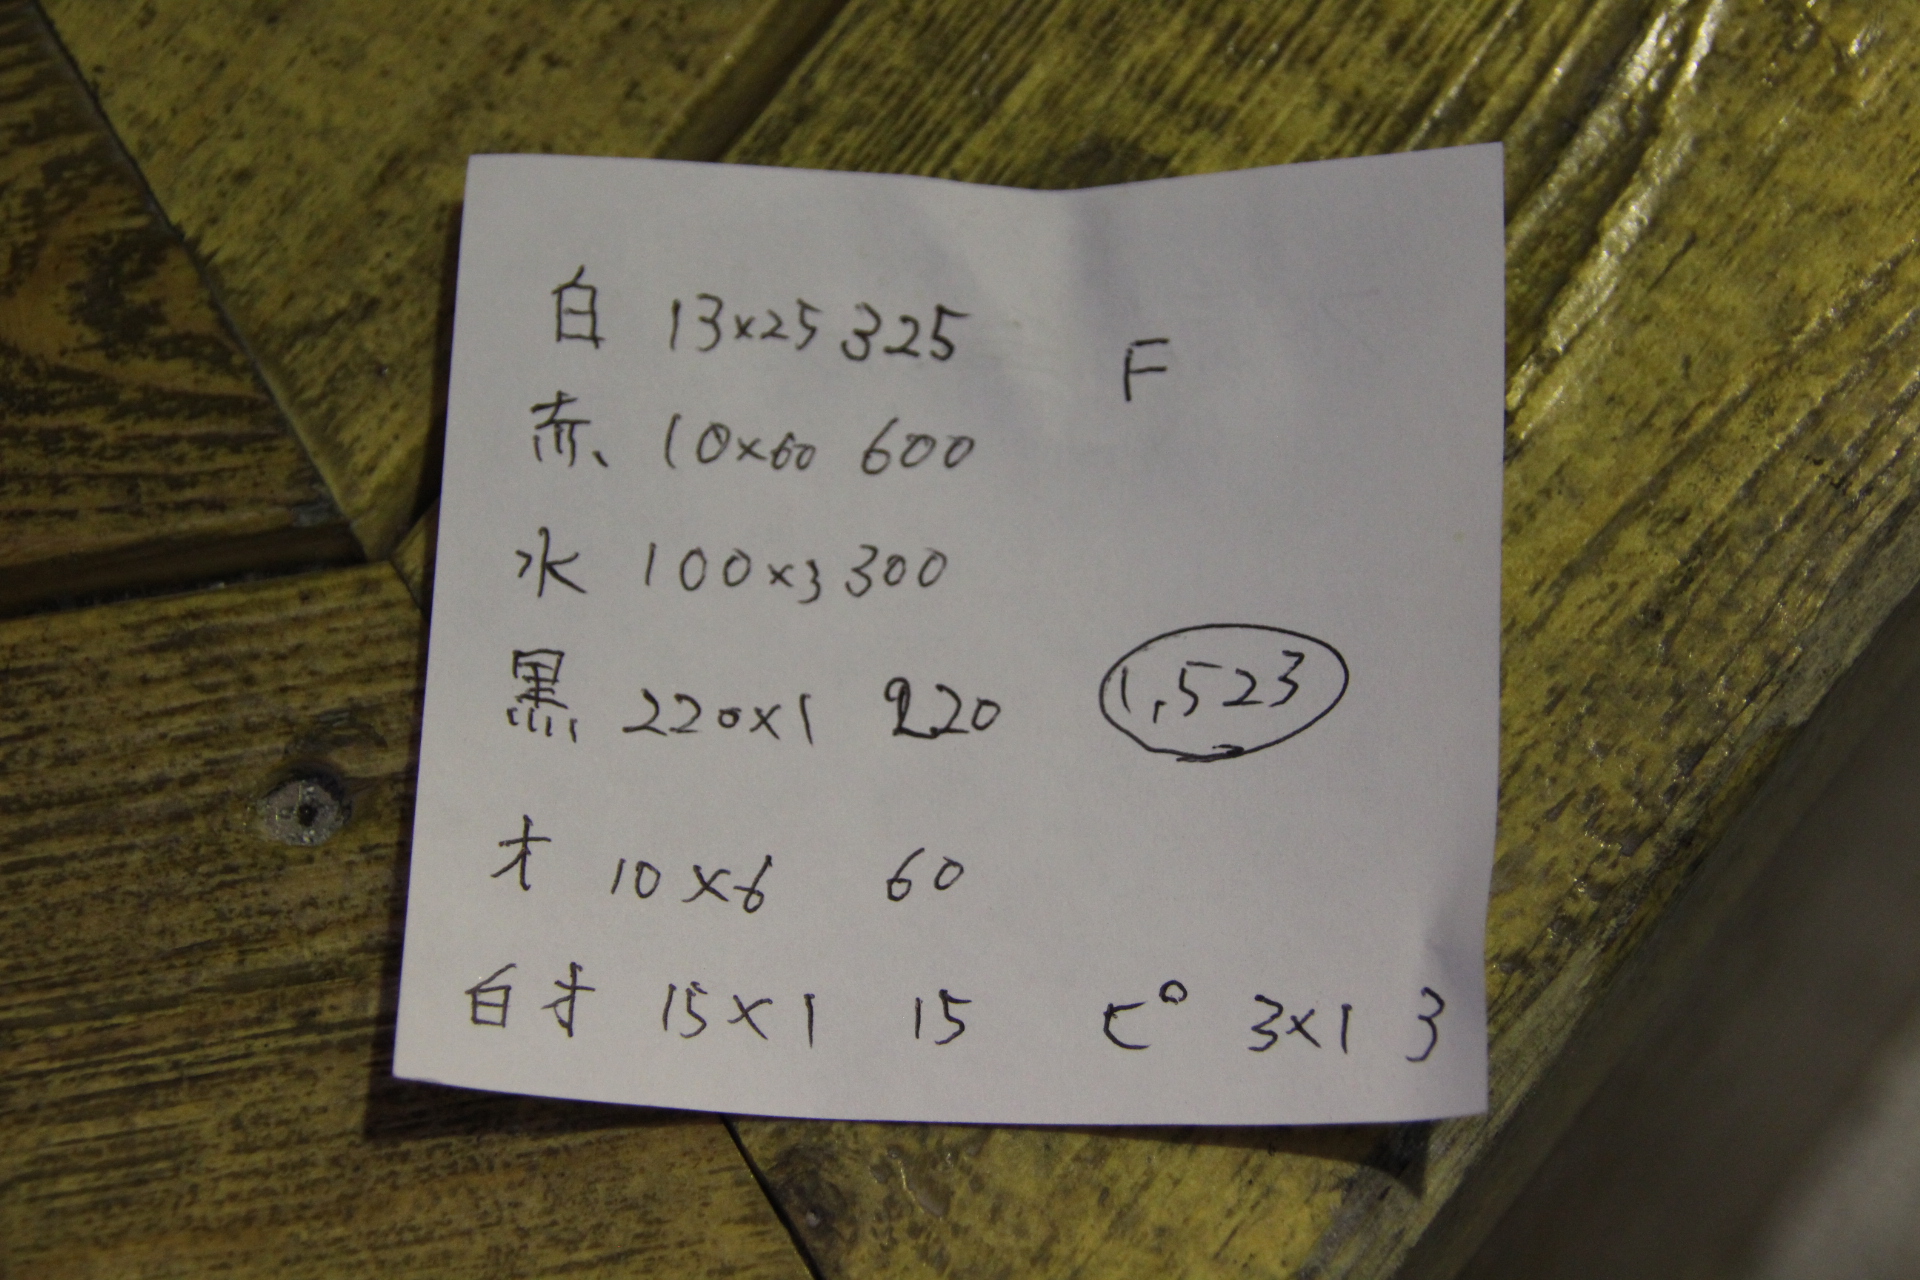 白 13×25 325
F
赤 10×60 600
水 100×3 300
黒 220×1 220
1,523
才 10×6 60
白才 15×1 15 ピ 3×1 3